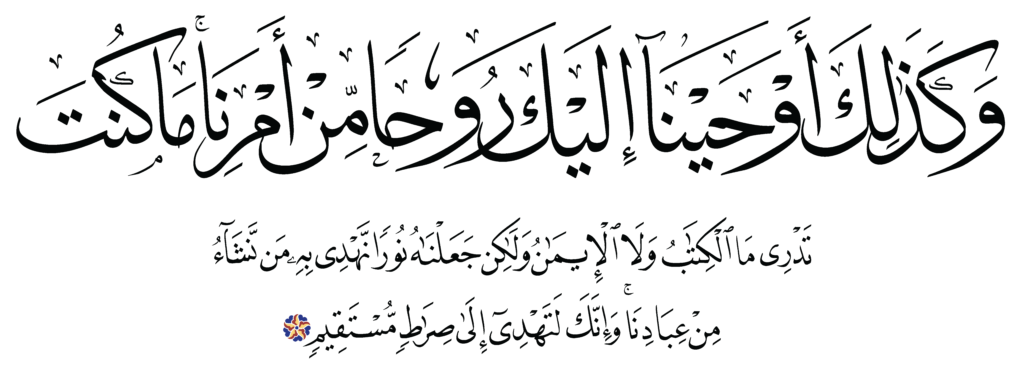 وَكَذَٰلِكَ أَوْحَيْنَآ إِلَيْكَ رُوحًا مِّنْ أَمْرِنَا ۚ مَا كُنتَ
تَدْرِى مَا ٱلْكِتَٰبُ وَلَا ٱلْإِيمَٰنُ وَلَٰكِن جَعَلْنَٰهُ نُورًا نَّهْدِى بِهِۦ مَن نَّشَآءُ
مِنْ عِبَادِنَا ۚ وَإِنَّكَ لَتَهْدِىٓ إِلَىٰ صِرَٰطٍ مُّسْتَقِيمٍ